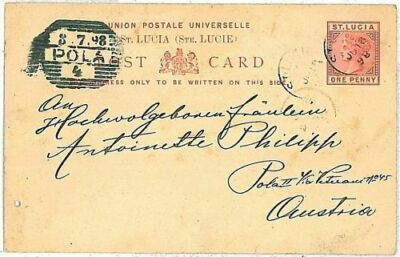 UNION POSTALE UNIVERSELLE
ST. LUCIA (STE. LUCIE)
POST CARD
ADDRESS ONLY TO BE WRITTEN ON THIS SIDE
ST. LUCIA
ONE PENNY
8.7.98
POLA
4
An
Hochwolgeboren Fräulein
Antoinette Philipp
Pola II Via Veterani No 45
Austria